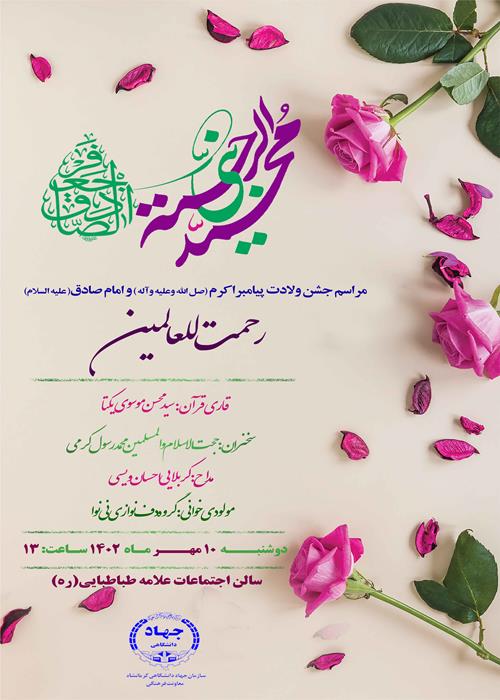 محمد نبی الرحمة
جعفر الصادق
مراسم جشن ولادت پیامبر اکرم (صل الله وعلیه وآله) و امام صادق (علیه السلام)
رحمت للعالمین
قاری قرآن: سید محسن موسوی یکتا
سخنران: حجت الاسلام والمسلمین محمد رسول کرمی
مداح: کربلایی احسان ویسی
مولودی خوانی: گروه دف نوازی نی نوا
دوشنبه ۱۰ مهر ماه ۱۴۰۲ ساعت: ۱۳
سالن اجتماعات علامه طباطبایی (ره)
جهاد
دانشگاهی
سازمان جهاد دانشگاهی کرمانشاه
معاونت فرهنگی